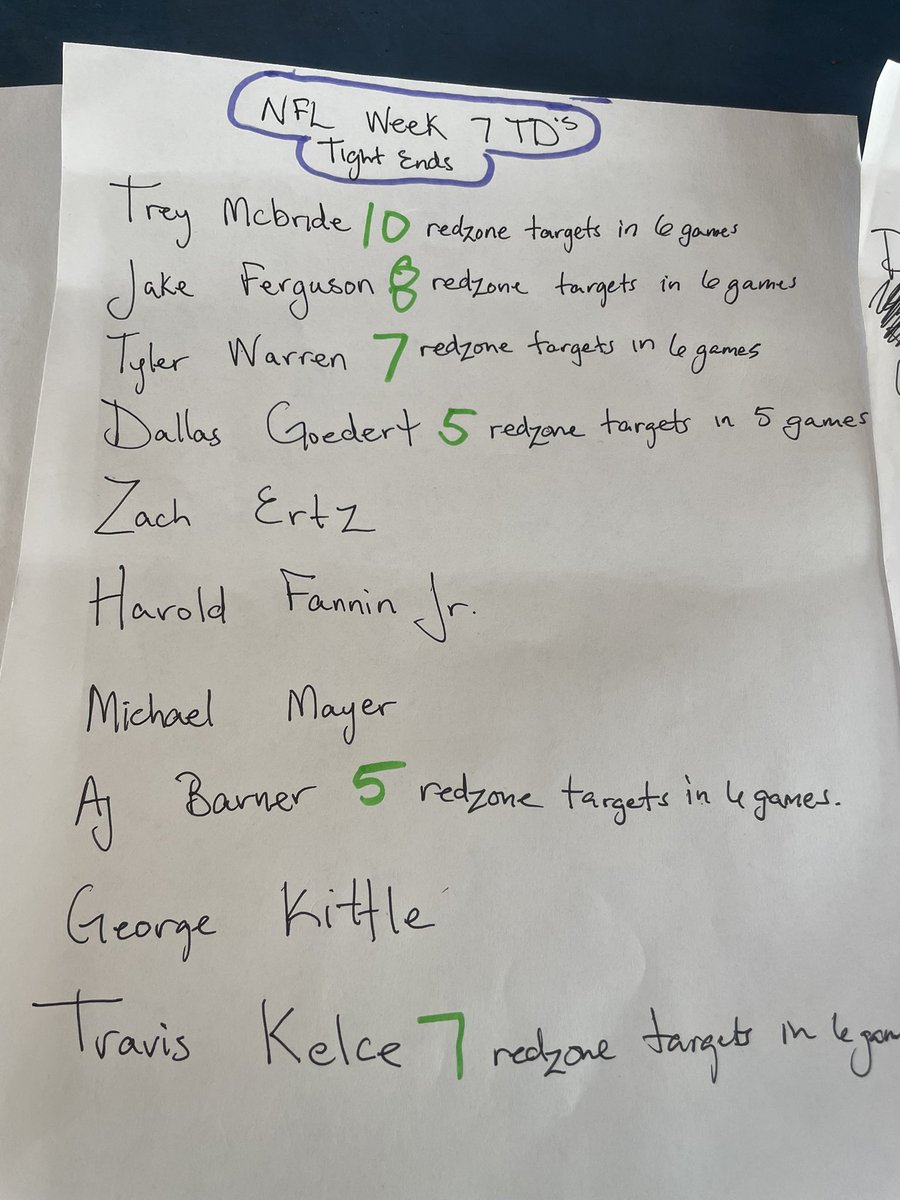 NFL Week 7 TD's
Tight Ends
Trey Mcbride 10 redzone targets in 6 games
Jake Ferguson 8 redzone targets in 6 games
Tyler Warren 7 redzone targets in 6 games
Dallas Goedert 5 redzone targets in 5 games
Zach Ertz
Harold Fannin Jr.
Michael Mayer
AJ Barner 5 redzone targets in 6 games.
George Kittle
Travis Kelce 7 redzone targets in 6 gam